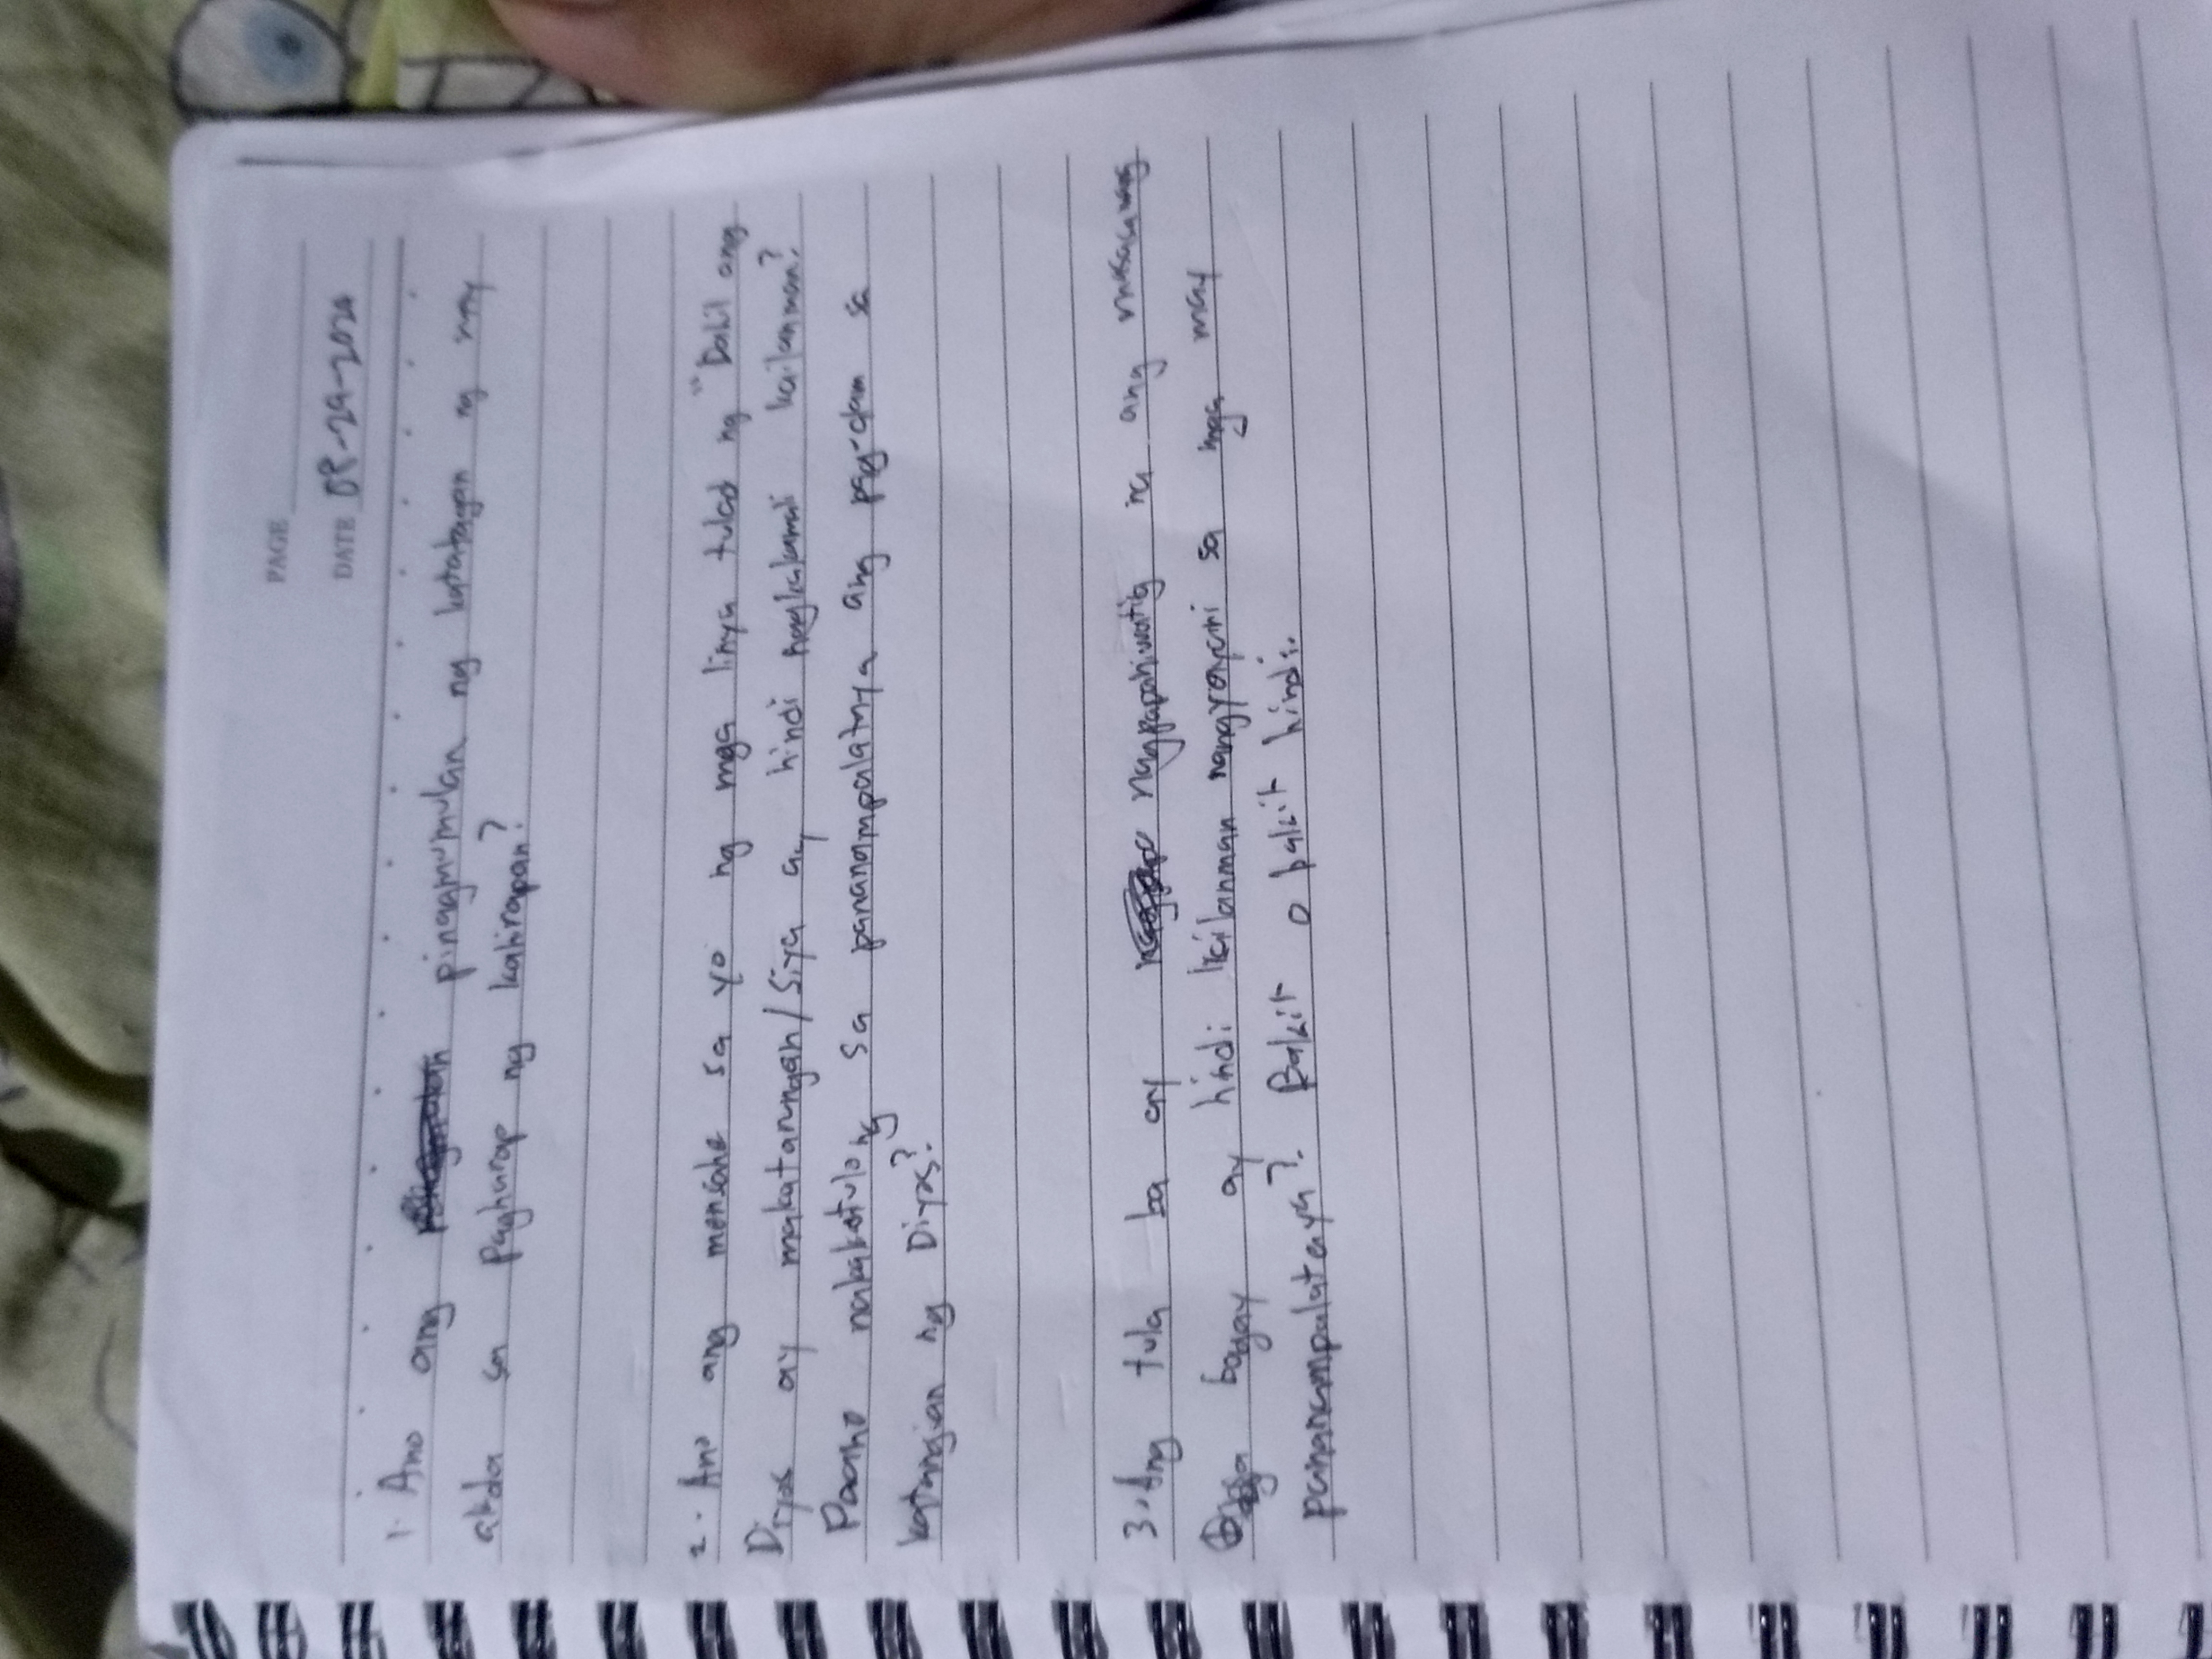 PAGE
DATE 08-29-2024
1. Ano ang pinagmumulan ng katatagan ng may
akda sa pagharap ng kahirapan?
2. Ano ang mensahe sa yo ng mga linya tulad ng "Dahil ang
Diyos ay makatarungan/Siya ay hindi nagkakamali kailanman?
Paano nakakatulong sa pananampalatnya ang pag-dam sa
katangian ng Diyos?
3. Ang tula ba ay nagpapahiwatig na ang masasamang
bagay ay hindi kailanman nangyayari sa mga may
pananampalataya? Bakit o bakit hindi.